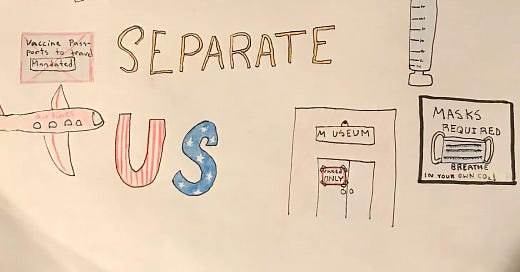 SEPARATE
Vaccine Pass-
ports to travel
Mandated
airlines
US
MUSEUM
Vaxed
ONLY
MASKS
REQUIRED
BREATHE
IN YOUR OWN CO2!